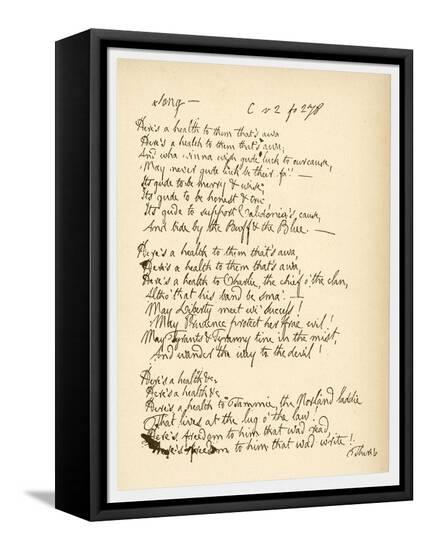 Song —
C v 2 fo 278
Here's a health to them that's awa
Here's a health to them that's awa,
And wha winna wish gude luck to our cause,
May never gude luck be their fa'! —
Its gude to be merry & wise,
Its gude to be honest & true
Its gude to support Caledonia's cause,
And bide by the Buff & the Blue. —
Here's a health to them that's awa,
Here's a health to them that's awa,
Here's a health to Charlie, the chief o' the clan,
Altho' that his band be sma'. —
May Liberty meet wi' success!
May Prudence protect her frae evil!
May Tyrants & Tyranny tine in the mist,
And wander the way to the devil!
Here's a health &c.
Here's a health &c
Here's a health to Tammie, the Norland laddie
That lives at the lug o' the law!
Here's freedom to him that wad read,
Here's freedom to him, that wad write!